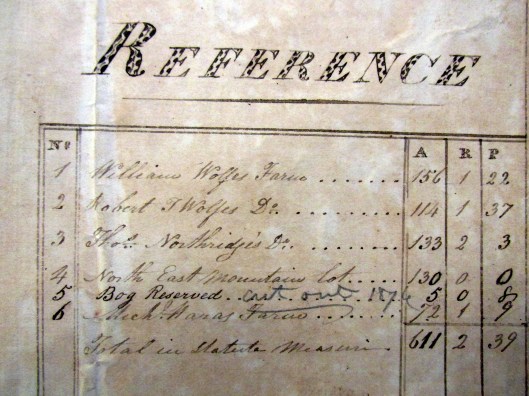 REFERENCE
No A R P
1 William Wolfes Farm ....... 156 1 22
2 Robert T Wolfes Do. ......... 114 1 37
3 Thos. Northridges Do. ........ 133 2 3
4 North East Mountain Lot..... 130 0 0
5 Bog Reserved.. cut out 5 0 8
6 Farm ...... 72 1 9
Total in Statute Measure . 611 2 39